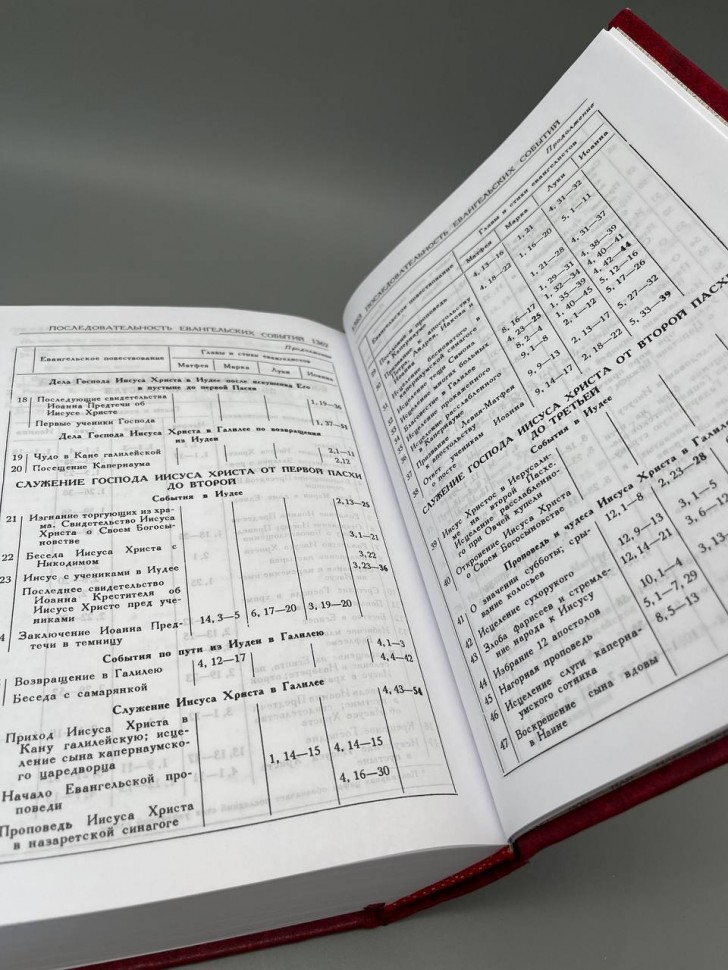 ПОСЛЕДОВАТЕЛЬНОСТЬ ЕВАНГЕЛЬСКИХ СОБЫТИЙ
Продолжение
Евангельское повествование
Главы и стихи евангелистов
Матфея Марка Луки Иоанна
Дела Господа Иисуса Христа в Иудее после искушения Его
в пустыне до первой Пасхи
18 Последующие свидетельства
Иоанна Предтечи об
Иисусе Христе 1, 19—36
Первые ученики Господа 1, 37—51
Дела Господа Иисуса Христа в Галилее по возвращении
из Иудеи
19 Чудо в Кане галилейской 2,1—11
20 Посещение Капернаума 2,12
СЛУЖЕНИЕ ГОСПОДА ИИСУСА ХРИСТА ОТ ПЕРВОЙ ПАСХИ
ДО ВТОРОЙ
События в Иудее
21 Изгнание торгующих из хра-
ма. Свидетельство Иисуса
Христа о Своем Богосы-
новстве 2, 13—25
22 Беседа Иисуса Христа с
Никодимом 3,1—21
23 Иисус с учениками в Иудее 3,22
Последнее свидетельство
Иоанна Крестителя об
Иисусе Христе пред уче-
никами 3,23—36
4 Заключение Иоанна Пред-
течи в темницу 14, 3—5 6, 17—20 3, 19—20
События по пути из Иудеи в Галилею
Возвращение в Галилею 4, 12—17 4,1—3
Беседа с самарянкой 4,4—42
Служение Иисуса Христа в Галилее
Приход Иисуса Христа в
Кану галилейскую; исце-
ление сына капернаумско-
го царедворца 4, 43—54
Начало Евангельской про-
поведи 1, 14—15 4, 14—15
Проповедь Иисуса Христа
в назаретской синагоге 4, 16—30
ПОСЛЕДОВАТЕЛЬНОСТЬ ЕВАНГЕЛЬСКИХ СОБЫТИЙ
Продолжение
Евангельское повествование
Главы и стихи евангелистов
Матфея Марка Луки Иоанна
4, 13—16 1, 21 4, 31—32
4, 18—22 1, 16—20 5, 1—11
1, 21—28 4, 31—37
1, 29—31 4, 38—39
8, 16—17 1, 32—34 4, 40—41
4, 23—25 1, 35—39 4, 42—44
8, 2—4 1, 40—45 5, 12—16
9, 1—8 2, 1—12 5, 17—26
9, 9—13 2, 13—17 5, 27—32
9, 14—17 2, 18—22 5, 33—39
СЛУЖЕНИЕ ГОСПОДА ИИСУСА ХРИСТА ОТ ВТОРОЙ ПАСХИ
ДО ТРЕТЬЕЙ
События в Иудее
39 Иисус Христос в Иерусали-
ме на второй Пасхе.
Исцеление расслабленного
при Овчей купели
40 Откровение Иисуса Христа
о Своем Богосыновстве
Проповедь и чудеса Иисуса Христа в Галилее
41 О значении субботы; сры-
вание колосьев 12, 1—8 2, 23—28
42 Исцеление сухорукого 12, 9—13 3, 1—5
43 Злоба фарисеев и стремле-
ние народа к Иисусу 12, 14—21 3, 6—1
44 Избрание 12 апостолов 10, 1—4 3, 13
45 Нагорная проповедь 5, 1—7, 29
46 Исцеление слуги каперна-
умского сотника 8, 5—13
47 Воскрешение сына вдовы
в Наине